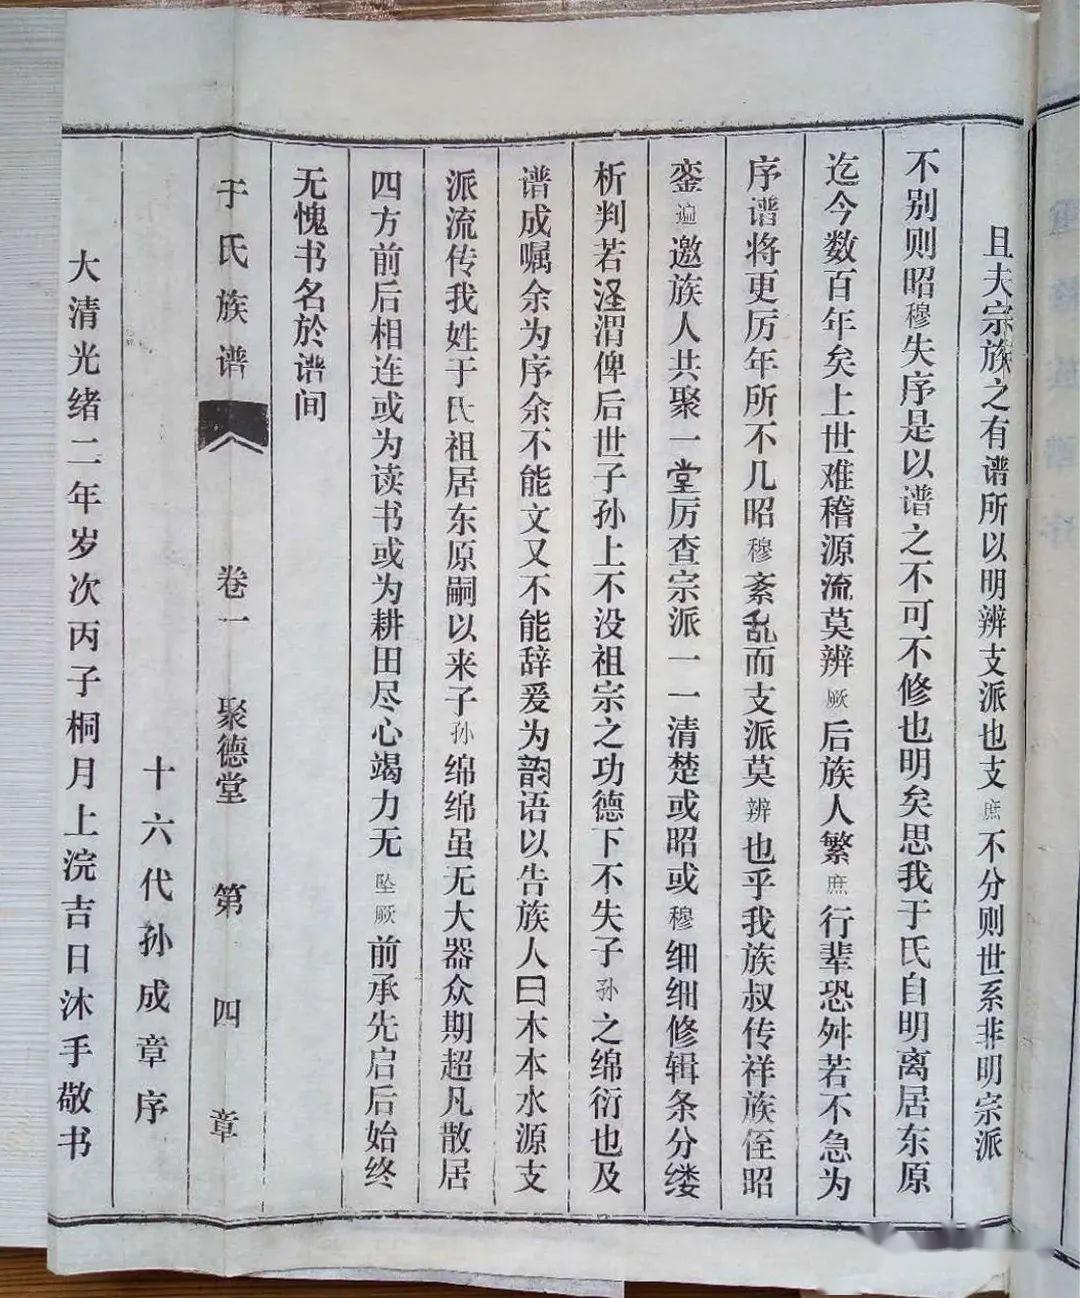 且夫宗族之有谱所以明辨支派也支庶不分则世系非明宗派
不别则昭穆失序是以谱之不可不修也明矣思我于氏自明离居东原
迄今数百年矣上世难稽源流莫辨厥后族人繁庶行辈恐舛若不急为
序谱将更历年所不几昭穆紊乱而支派莫辨也乎我族叔传祥族侄昭
銮遍邀族人共聚一堂厉查宗派一一清楚或昭或穆细细修辑条分缕
析判若泾渭俾后世子孙上不没祖宗之功德下不失子孙之绵衍也及
谱成嘱余为序余不能文又不能辞爰为韵语以告族人曰木本水源支
派流传我姓于氏祖居东原嗣以来子孙绵绵虽无大器众期超凡散居
四方前后相连或为读书或为耕田尽心竭力无坠厥前承先启后始终
无愧书名於谱间
于氏族谱 卷一 聚德堂 第四章
十六代孙成章序
大清光绪二年岁次丙子桐月上浣吉日沐手敬书